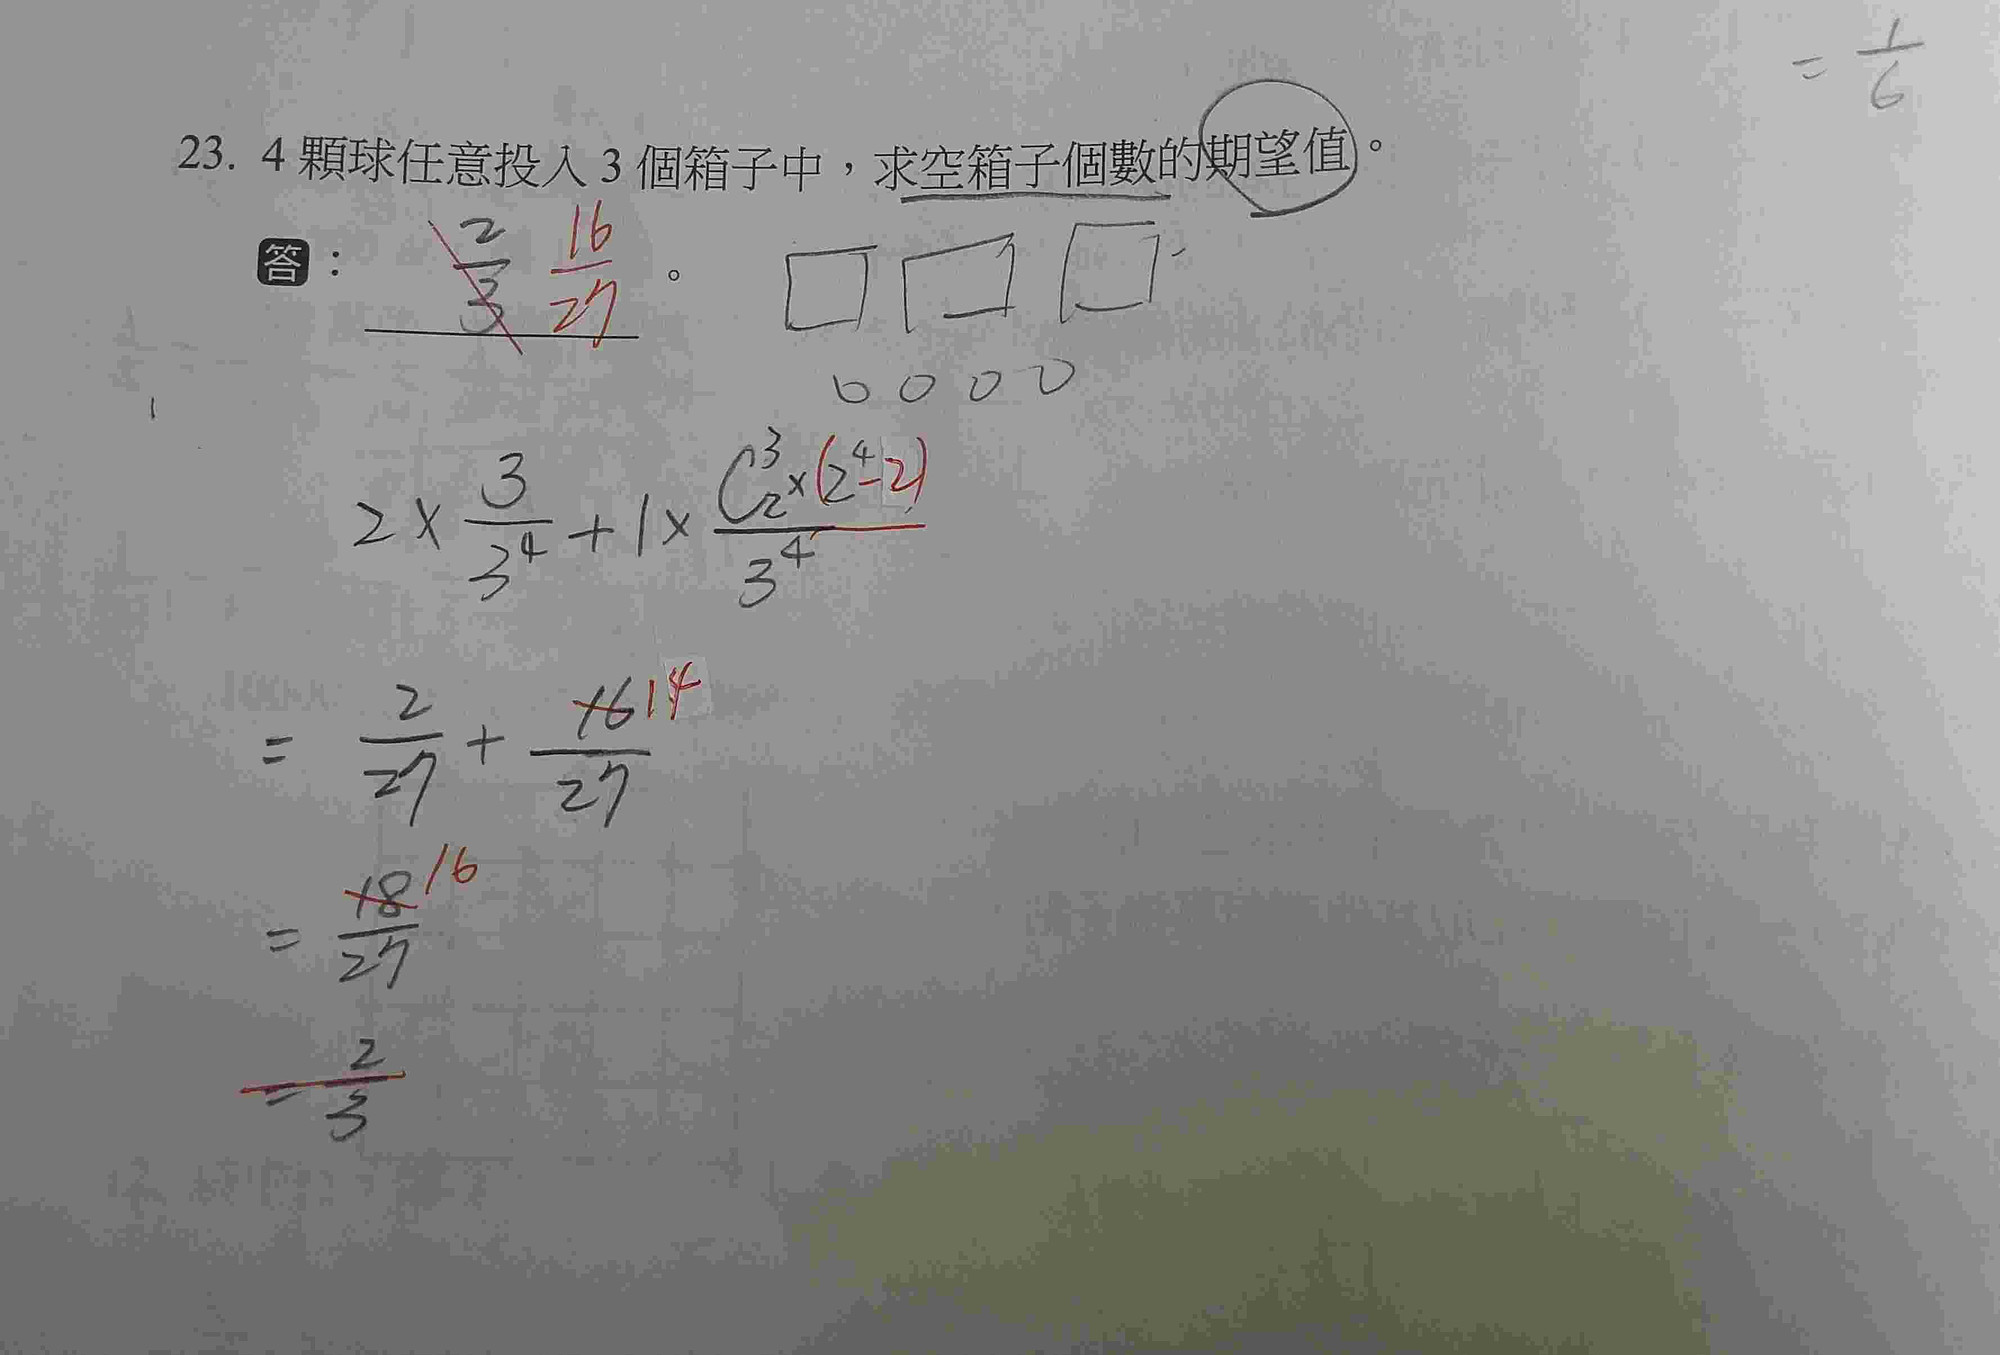 = 1/6
23. 4 顆球任意投入 3 個箱子中，求空箱子個數的期望值。
答： 2/3 16/27 。
2 × 3/3^4 + 1 × C^3_2 × (2^4 - 2)/3^4
= 2/27 + 16 14/27
= 18 16/27
= 2/3